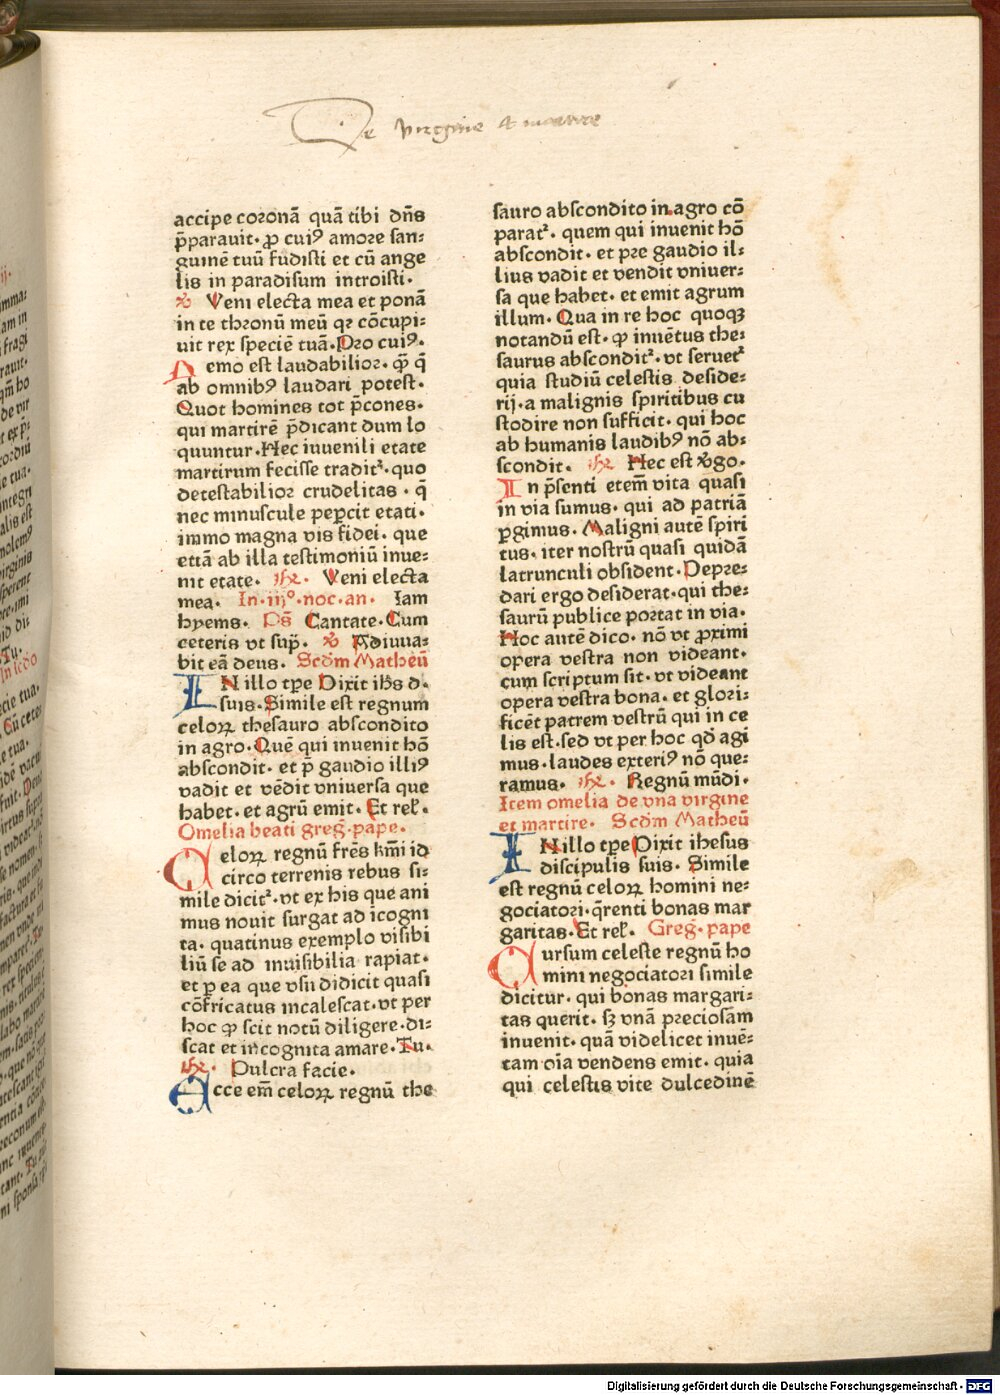 De virgine et martire
accipe coronā quā tibi dn̄s
p̄parauit· ꝓ cuiꝰ amore san⸗
guinē tuū fudisti et cū ange
lis in paradisum introisti·
℟ Veni electa mea et ponā
in te thronū meū qꝛ cōcupi⸗
uit rex speciē tuā· Pro cuiꝰ·
Nemo est laudabilior· q̄ q̄
ab omnibꝰ laudari potest·
Quot homines tot p̄cones·
qui martirē p̄dicant dum lo
quuntur· Hec iuuenili etate
martirum fecisse traditᷣ· quo
detestabilior crudelitas · q̄
nec minuscule peꝑcit etati·
immo magna vis fidei· que
etiā ab illa testimoniū inue⸗
nit etate. ihr̄· Veni electa
mea. In·iijº·noc·an· Iam
hyems. Ps̄ Cantate· Cum
ceteris vt supͣ· ℟ Adiuua⸗
bit eā deus. Scd̄m Matheū
IN illo tp̄e Dixit ihs̄ d·
suis· Simile est regnum
celoꝝ thesauro abscondito
in agro· Quē qui inuenit hō
abscondit· et p̄ gaudio illiꝰ
vadit et vēdit vniuersa que
habet· et agrū emit· Et rel̛·
Omelia beati greg̃·pape·
Celoꝝ regnū fr̄es km̄i id
circo terrenis rebus si⸗
mile dicitᷣ· vt ex his que ani
mus nouit surgat ad īcogni
ta· quatinus exemplo visibi
liū se ad inuisibilia rapiat·
et ꝑ ea que vsu didicit quasi
cōfricatus incalescat· vt per
hoc ꝙ scit notū diligere· di⸗
scat et incognita amare· Tu·
ihr̄· Pulcra facie·
Ecce em̄ celoꝝ regnū the
sauro abscondito in agro cō
paratᷣ· quem qui inuenit hō
abscondit· et pre gaudio il⸗
lius vadit et vendit vniuer⸗
sa que habet· et emit agrum
illum· Qua in re hoc quoqꝫ
notandū est· ꝙ inuētus the⸗
saurus absconditᷣ· vt seruetᷣ
quia studiū celestis deside⸗
rij· a malignis spiritibus cu
stodire non sufficit· qui hoc
ab humanis laudibꝰ nō ab⸗
scondit. ihr̄ Hec est v̛go.
In p̄senti etem̄ vita quasi
in via sumus· qui ad patriā
ꝑgimus. Maligni autē spiri
tus· iter nostrū quasi quidā
latrunculi obsident· Depre⸗
dari ergo desiderat· qui the⸗
saurū publice portat in via·
Hoc autē dico· nō vt ꝓximi
opera vestra non videant·
cum scriptum sit· vt videant
opera vestra bona· et glori⸗
ficēt patrem vestrū qui in ce
lis est· sed vt per hoc qd̄ agi
mus· laudes exteriꝰ nō que⸗
ramus. ihr̄· Regnū mūdi·
Item omelia de vna virgine
et martire. Scd̄m Matheū
IN illo tp̄e Dixit ihesus
discipulis suis· Simile
est regnū celoꝝ homini ne⸗
gociatori· q̄renti bonas mar
garitas· Et rel̛· Greg̃·pape
Cursum celeste regnū ho
mini negociatori simile
dicitur· qui bonas margari⸗
tas querit· sꝫ vnā preciosam
inuenit· quā videlicet inuē⸗
tam oīa vendens emit· quia
qui celestis vite dulcedinē
Digitalisierung gefördert durch die Deutsche Forschungsgemeinschaft · DFG